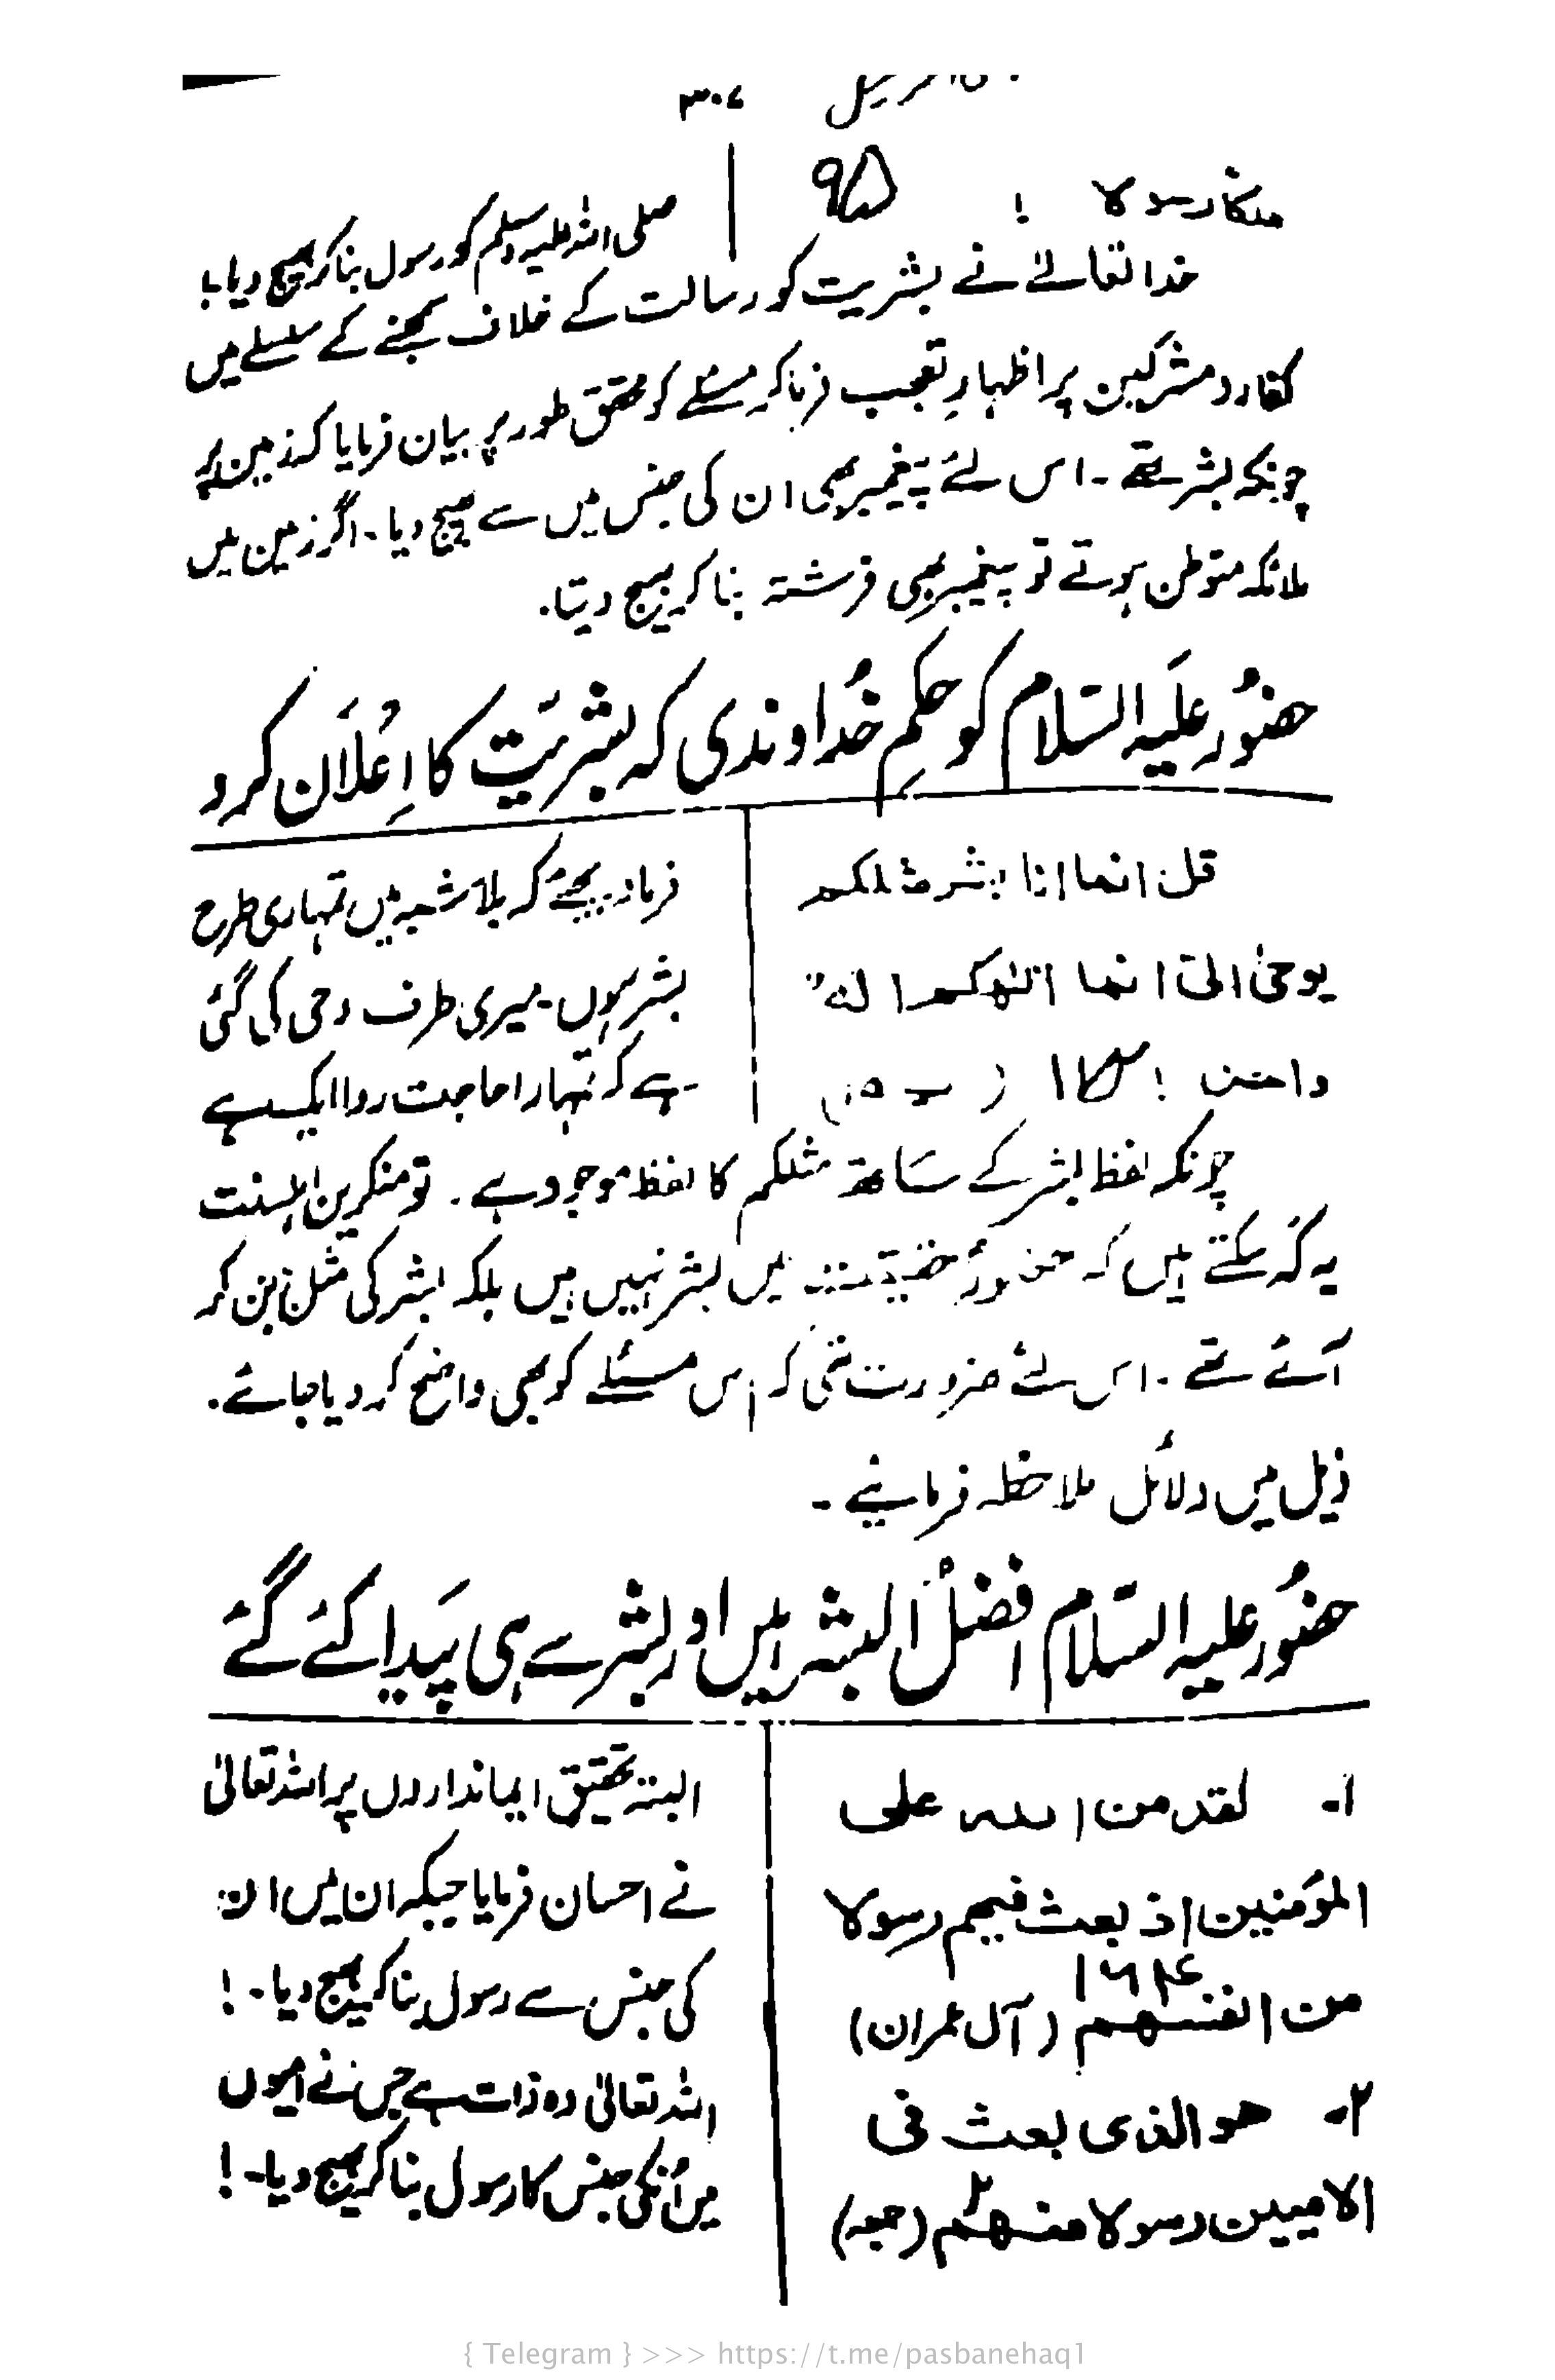 ۳۰۷
ملکا رسولا ! ۹۵
صلی اللہ علیہ وسلم کو رسول بنا کر بھیج دیا بنا
خدا تعالےٰ نے بشریت کو رسالت کے خلاف سمجھنے کے سلسلے میں
کفار و مشرکین پر اظہارِ تعجب فرما کر مسئلے کو محقق طور پر بیان فرمایا کہ زمین پر
چونکہ بشر تھے۔ اس لئے پیغمبر بھی ان کی جنس میں سے بھیج دیا۔ اگر زمین میں
ملائکہ متوطن ہوتے تو پیغمبر بھی فرشتہ بنا کر بھیج دیتا.
حضُور علَیہ السّلام کو حکمِ خُداوندی کہ بشریَّت کا اِعْلَان کر دو
قل انما انا بشر مثلکم
یوحیٰ الیّ انما الٰھکم الٰہ
واحد ! ۱۲ (پ ۱۵)
فرما دیجئے کہ بلا شبہ میں تمہاری طرح
بشر ہوں۔ میری طرف وحی کی گئی
ہے کہ تمہارا حاجت روا ایک ہے
چونکہ لفظ بشر کے ساتھ مثلکم کا لفظ موجود ہے. تو منکرین اہلسنت
یہ کہہ سکتے ہیں کہ حضورؐ حقیقت میں بشر نہیں ہیں بلکہ بشر کی مثل بن کر
آئے تھے۔ اس لئے ضرورت تھی کہ اس مسئلے کو بھی واضح کر دیا جائے.
ذیل میں دلائل ملاحظہ فرمائیے۔
حضُور علیہ السّلام افضلُ البشر ہیں اور بشر سے ہی پَیدا کئے گئے
۱۔ لقد من اللہ علی
المؤمنین اذ بعث فیھم رسولا
من انفسھم (آل عمران) ۱۶۴
۲۔ ھو الذی بعث فی
الامیین رسولا منھم (جمعہ) ۲
البتہ تحقیق ایمانداروں پر اللہ تعالیٰ
نے احسان فرمایا جبکہ ان میں ان
کی جنس سے رسول بنا کر بھیج دیا۔!
اللہ تعالیٰ وہ ذات ہے جس نے امیوں
میں اُنکی جنس کا رسول بنا کر بھیج دیا۔!
{ Telegram } >>> https://t.me/pasbanehaq1